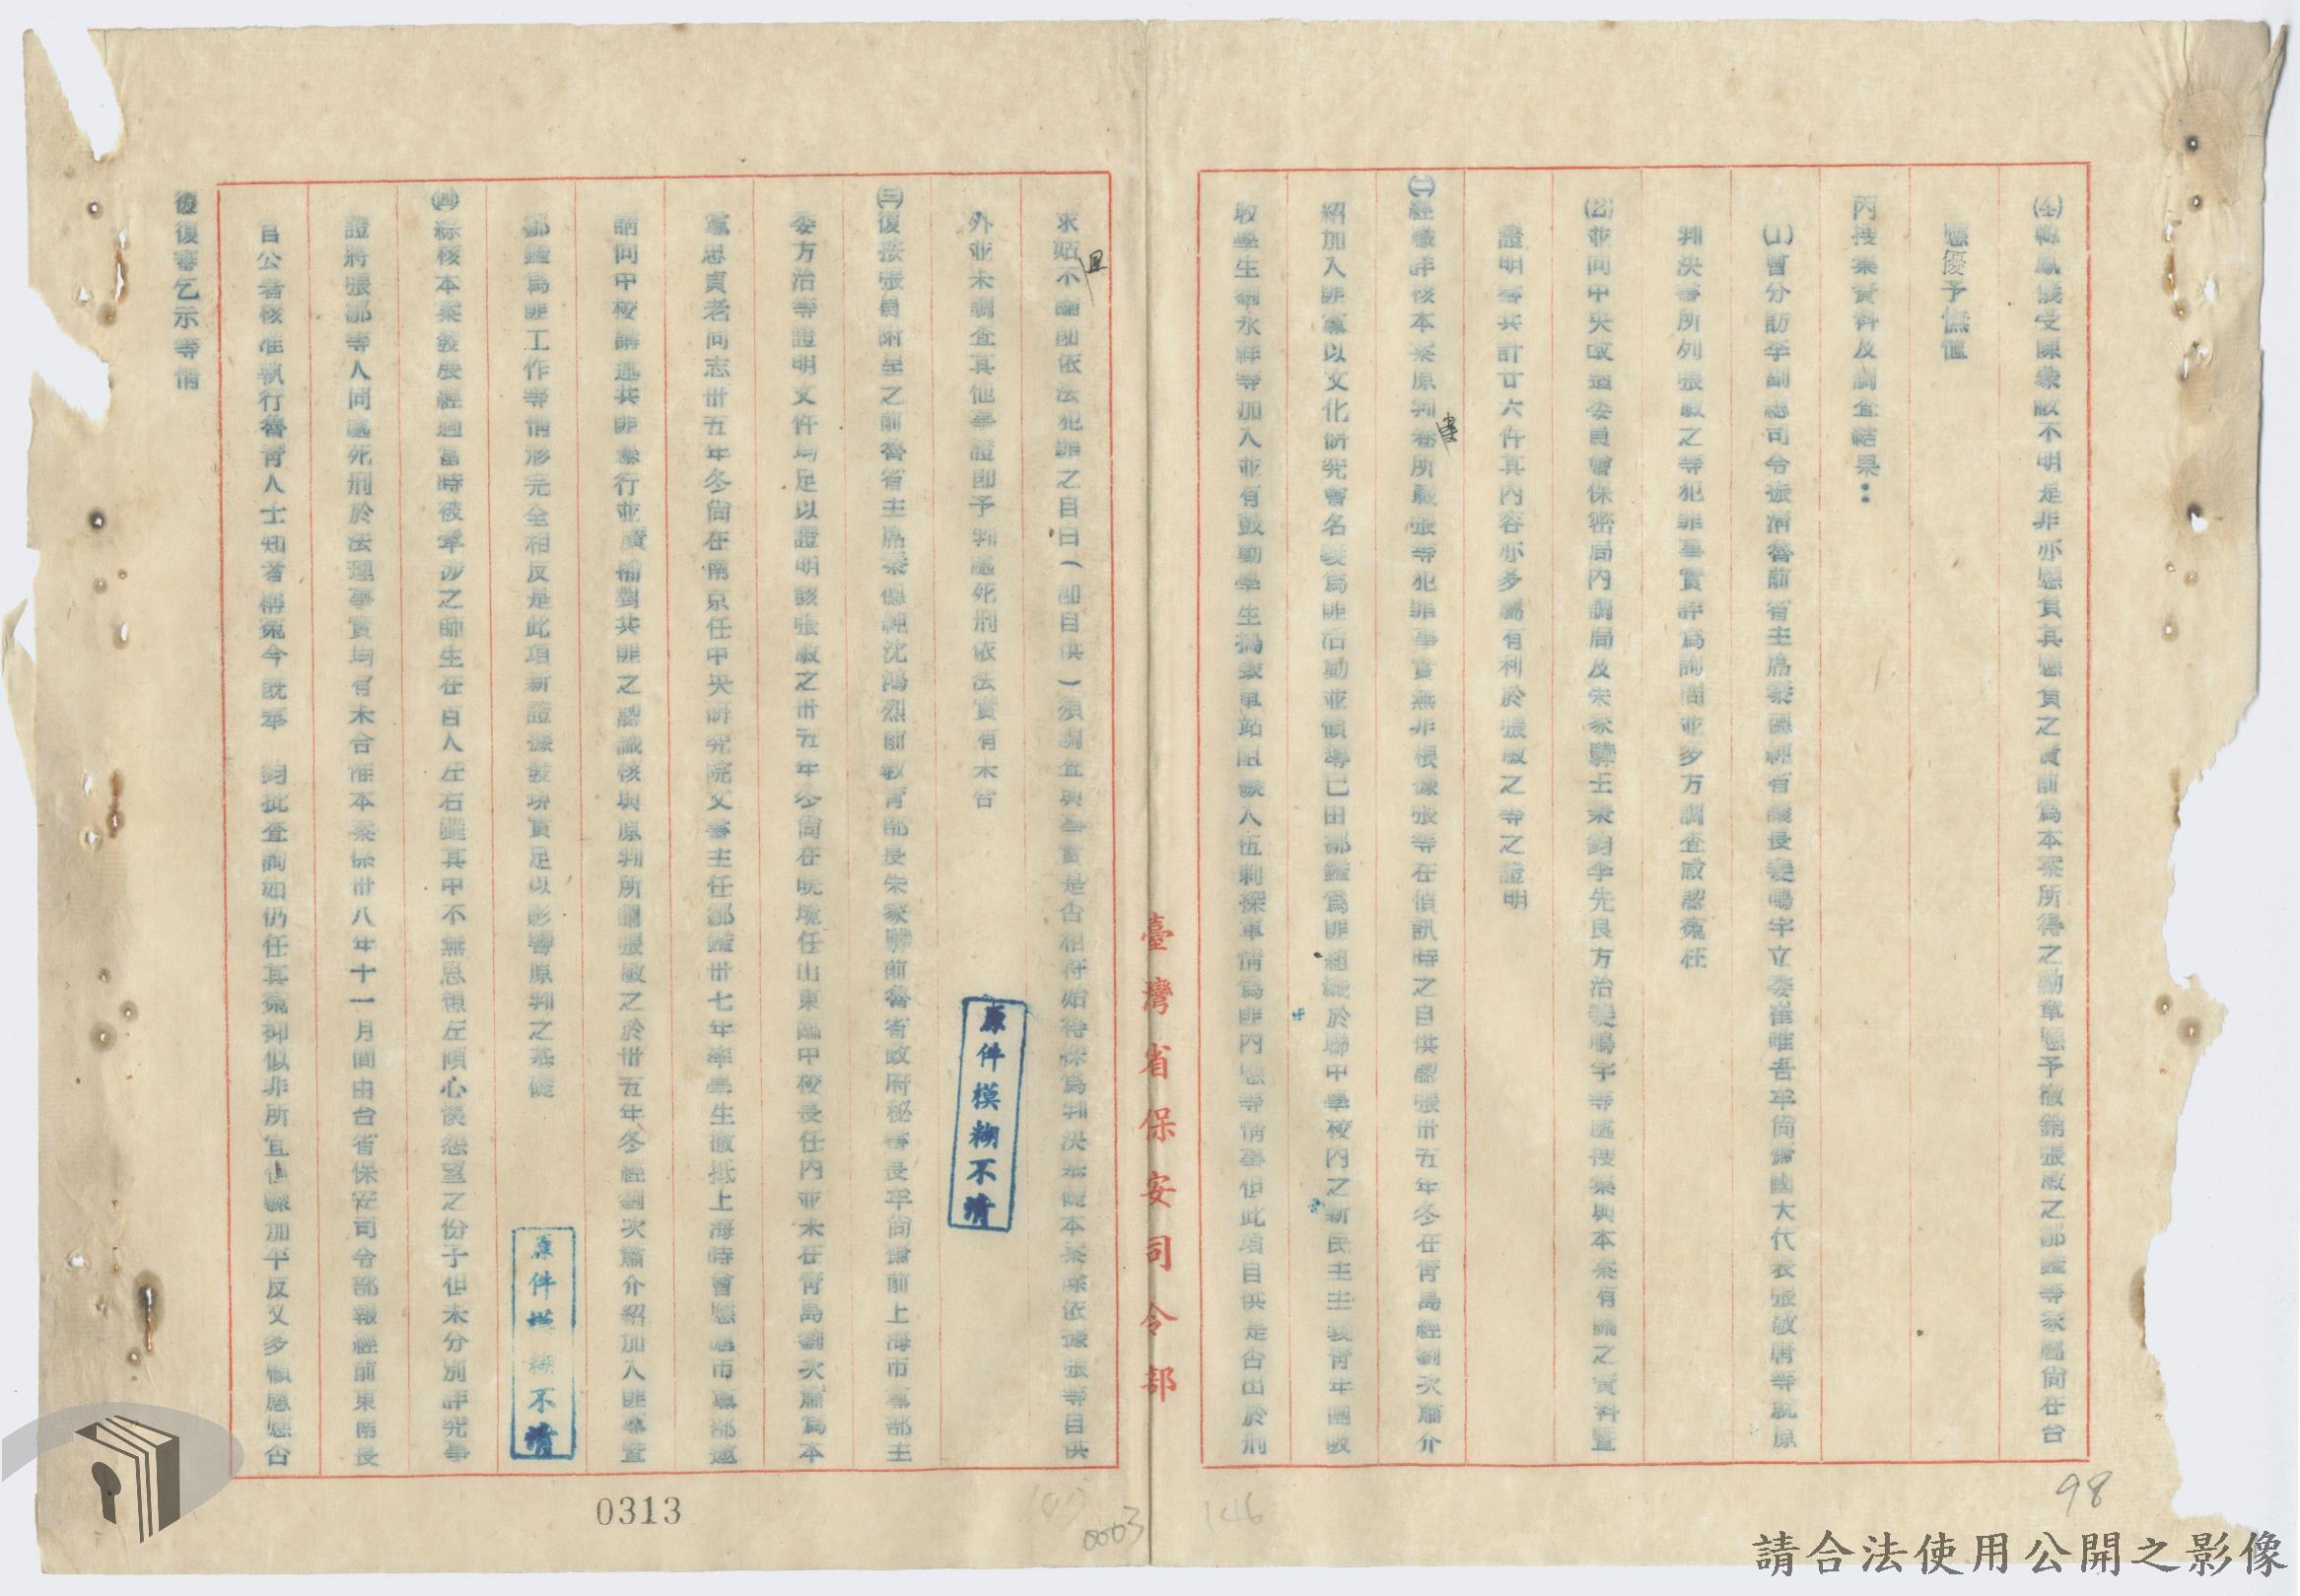 (4)韓鳳儀受陳蒙蔽不明是非亦應負其應負之責前為本案所得之勳章應予撤銷張敏之鄒鑑等家屬尚在台
應優予憮恤
丙搜集資料及調查結果：
(1)曾分訪李副總司令振清魯前省主席秦德純省議長裴鳴宇立委崔唯吾牟尚齋國大代表張敏唐等就原
判決書所列張敏之等犯罪事實詳為詢問並多方調查咸認冤枉
(2)並向中央改造委員會保密局內調局及朱家驊王秉鈞李先良方治裴鳴宇等處搜集與本案有關之資料暨
證明書共計廿六件其內容亦多屬有利於張敏之等之證明
(二)經職詳核本案原判卷所載張等犯罪事實無非根據張等在偵訊時之自供認張卅五年冬在青島經劉次蕭介
紹加入匪黨以文化研究會名義為匪活動並領導已由鄒鑑為匪組織於聯中學校內之新民主主義青年團吸
收學生 永祥等加入並有鼓動學生搗亂車站阻撓入伍刺探軍情為匪內應等情事但此項自供是否出於刑
求姑且不論即依法犯罪之自白(即自供)須調查與事實是否相符始得採為判決基礎本案除依據張等自供
外並未調查其他事證即予判處死刑依法實有未合
(三)復按張員附呈之前魯省主席秦德純沈鴻烈前教育部長朱家驊前魯省政府秘書長牟尚齋前上海市黨部主
委方治等證明文件均足以證明該張敏之卅五年冬尚在皖境任山東臨中校長任內並未在青島劉次蕭為本
黨忠貞老同志卅五年冬尚在南京任中央研究院文書主任鄒鑑卅七年率學生撤抵上海時曾應滬市黨部邀
請向中校講述共匪暴行並廣播對共匪之認識核與原判所謂張敏之於卅五年冬經劉次蕭介紹加入匪黨暨
鄒鑑為匪工作等情形完全相反是此項新證據發現實足以影響原判之基礎
(四)綜核本案發展經過當時被牽涉之師生在百人左右雖其中不無思想左傾心懷怨望之份子但未分別詳究事
證將張鄒等人同處死刑於法理事實均有未合惟本案係卅八年十一月間由台省保安司令部報經前東南長
官公署核准執行魯青人士知者稱冤今既奉　鈞批查詢如仍任其冤抑似非所宜但驟加平反又多顧慮應否
復審乞示等情
臺灣省保安司令部
原件模糊不清
原件模糊不清
0313
0003
146
98
請合法使用公開之影像